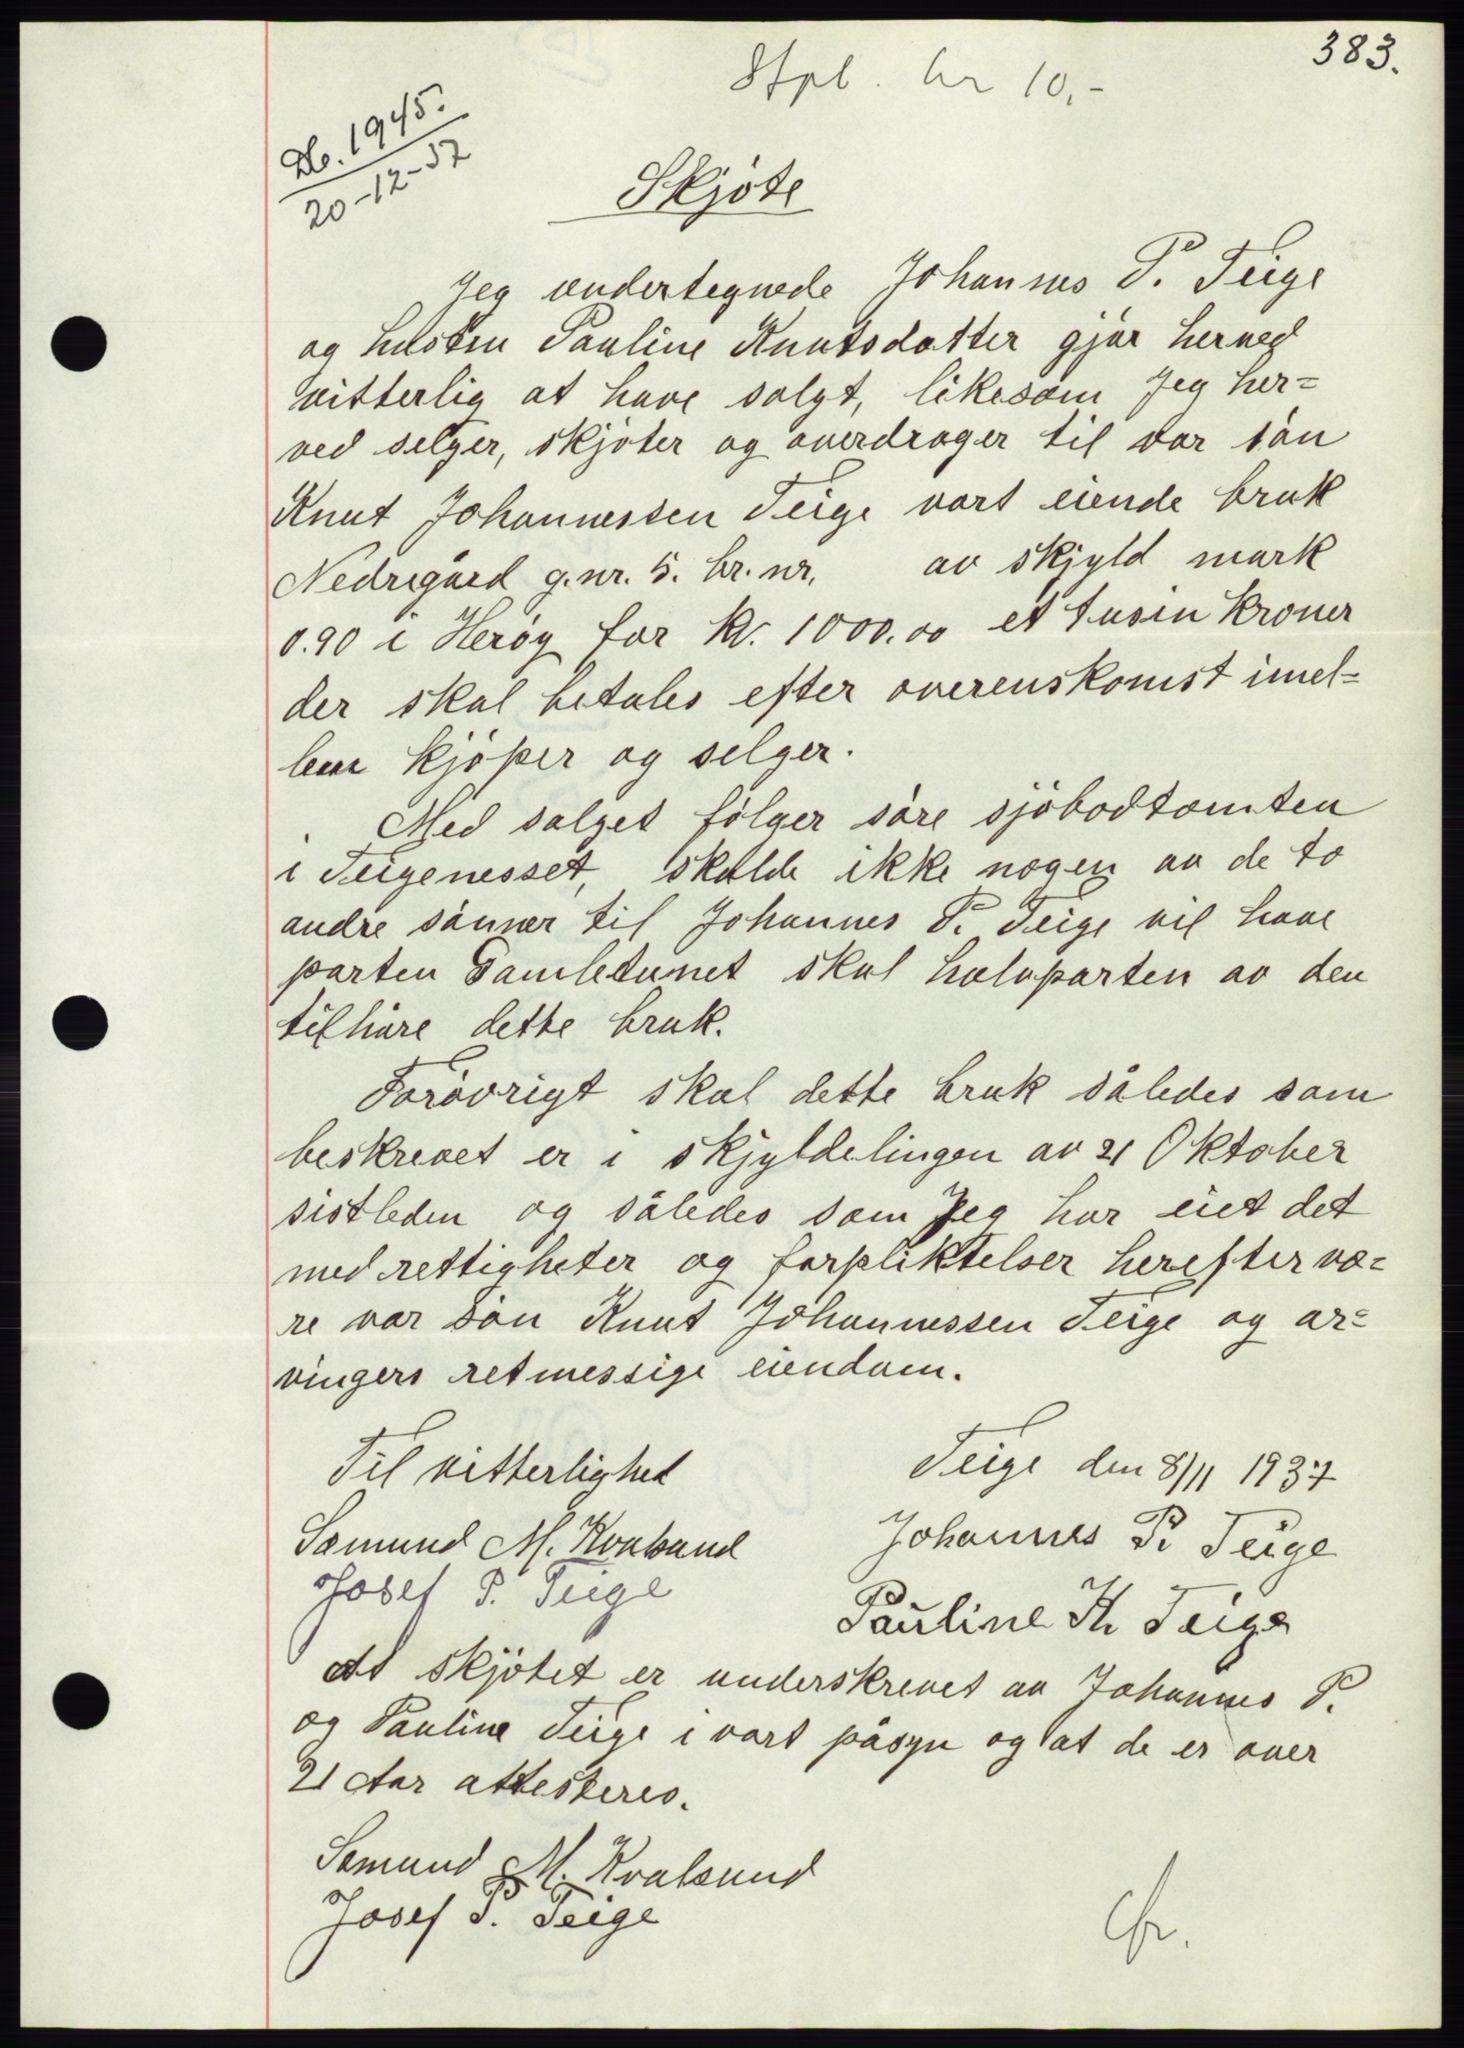 383.
Stpl. kr 10,-
Db. 1945.
20-12-37
Skjøte
Jeg undertegnede Johannes P. Teige
og husten Pauline Knutsdatter gjør herved
vitterlig at have solgt, likesom Jeg her=
ved selger, skjøter og overdrager til vor søn
Knut Johannessen Teige vort eiende bruk
Nedregård g.nr. 5. br. nr. av skjyld mark
0.90 i Herøy for kr. 1000.00 et tusin kroner
der skal betales efter overenskomst imel=
lem kjøper og selger.
Med salget følger søre sjøbodtomten
i Teigenesset, skulde ikke nogen av de to
andre sønner til Johannes P. Teige vil have
parten Gamletunet skal halvparten av den
tilhøre dette bruk.
Forøvrigt skal dette bruk således som
beskrevet er i skjyldelingen av 21 Oktober
sistleden og således som Jeg har eiet det
med rettigheter og forpliktelser herefter væ=
re vor søn Knut Johannessen Teige og ar=
vingers retmessige eiendom.
Til vitterlighet
Teige den 8/11 1937
Sæmund M. Kvalsund
Johannes P. Teige
Josef P. Teige
Pauline K. Teige
At skjøtet er underskrevet av Johannes P.
og Pauline Teige i vort påsyn og at de er over
21 Aar attesteres.
Sæmund M. Kvalsund
Josef P. Teige